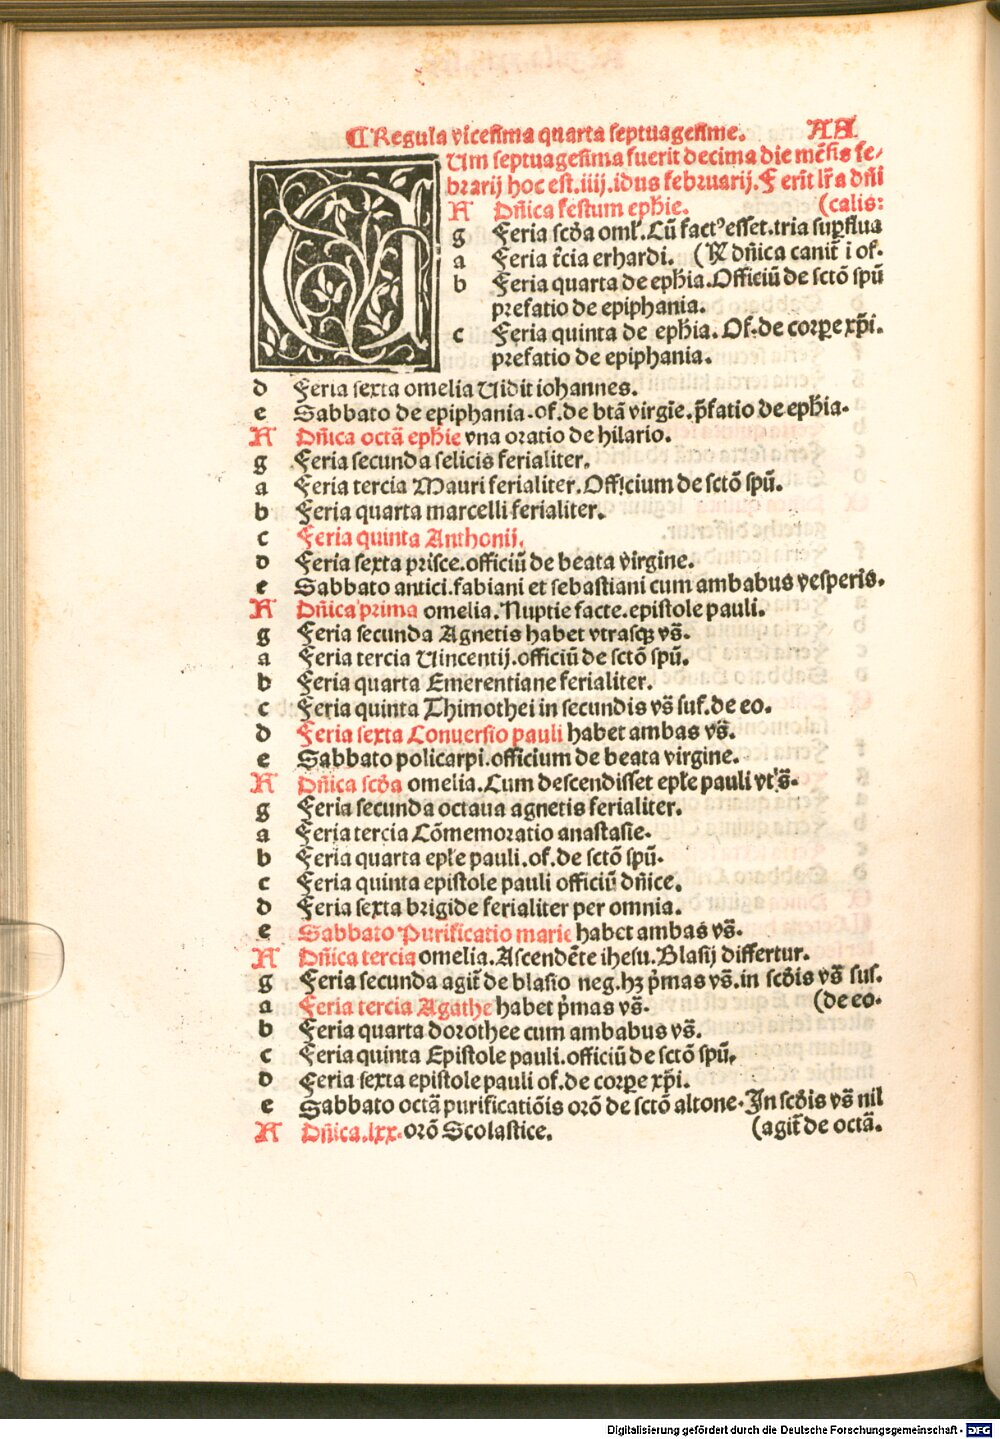 ¶ Regula vicesima quarta septuagesime. AA
CUm septuagesima fuerit decima die mēsis fe⸗
brarij hoc est .iiij. idus februarij. F erit lr̄a dñi
A Dñica festum eph̄ie. (calis:
g Feria scd̄a oml'. Cū fact⁹ esset. tria suꝑflua
a Feria t̄cia erhardi. (A dñica canit̄ i of.
b Feria quarta de eph̄ia. Officiū de sctō spū
prefatio de epiphania.
c Feria quinta de eph̄ia. Of. de corꝑe xp̄i.
prefatio de epiphania.
d Feria sexta omelia Uidit iohannes.
e Sabbato de epiphania. of. de btā virgie. p̄fatio de eph̄ia.
A Dñica octā eph̄ie vna oratio de hilario.
g Feria secunda felicis ferialiter.
a Feria tercia Mauri ferialiter. Officium de sctō spū.
b Feria quarta marcelli ferialiter.
c Feria quinta Anthonij.
d Feria sexta prisce. officiū de beata virgine.
e Sabbato antici. fabiani et sebastiani cum ambabus vesperis.
A Dñica prima omelia. Nuptie facte. epistole pauli.
g Feria secunda Agnetis habet vtrasqꝫ vs̄.
a Feria tercia Uincentij. officiū de sctō spū.
b Feria quarta Emerentiane ferialiter.
c Feria quinta Thimothei in secundis vs̄ suf. de eo.
d Feria sexta Conuersio pauli habet ambas vs̄.
e Sabbato policarpi. officium de beata virgine.
A Dñica scd̄a omelia. Cum descendisset epłe pauli vt's̄.
g Feria secunda octaua agnetis ferialiter.
a Feria tercia Cōmemoratio anastasie.
b Feria quarta epłe pauli. of. de sctō spū.
c Feria quinta epistole pauli officiū dñice.
d Feria sexta brigide ferialiter per omnia.
e Sabbato Purificatio marie habet ambas vs̄.
A Dñica tercia omelia. Ascendēte ihesu. Blasij differtur.
g Feria secunda agit̄ de blasio neg. hꝫ p̄mas vs̄. in scd̄is vs̄ suf.
a Feria tercia Agathe habet p̄mas vs̄. (de eo.
b Feria quarta dorothee cum ambabus vs̄.
c Feria quinta Epistole pauli. officiū de sctō spū.
d Feria sexta epistole pauli of. de corꝑe xp̄i.
e Sabbato octā purificatiōis orō de sctō altone. In scd̄is vs̄ nil
A Dñica .lxx. orō Scolastice. (agit̄ de octā.
Digitalisierung gefördert durch die Deutsche Forschungsgemeinschaft - DFG